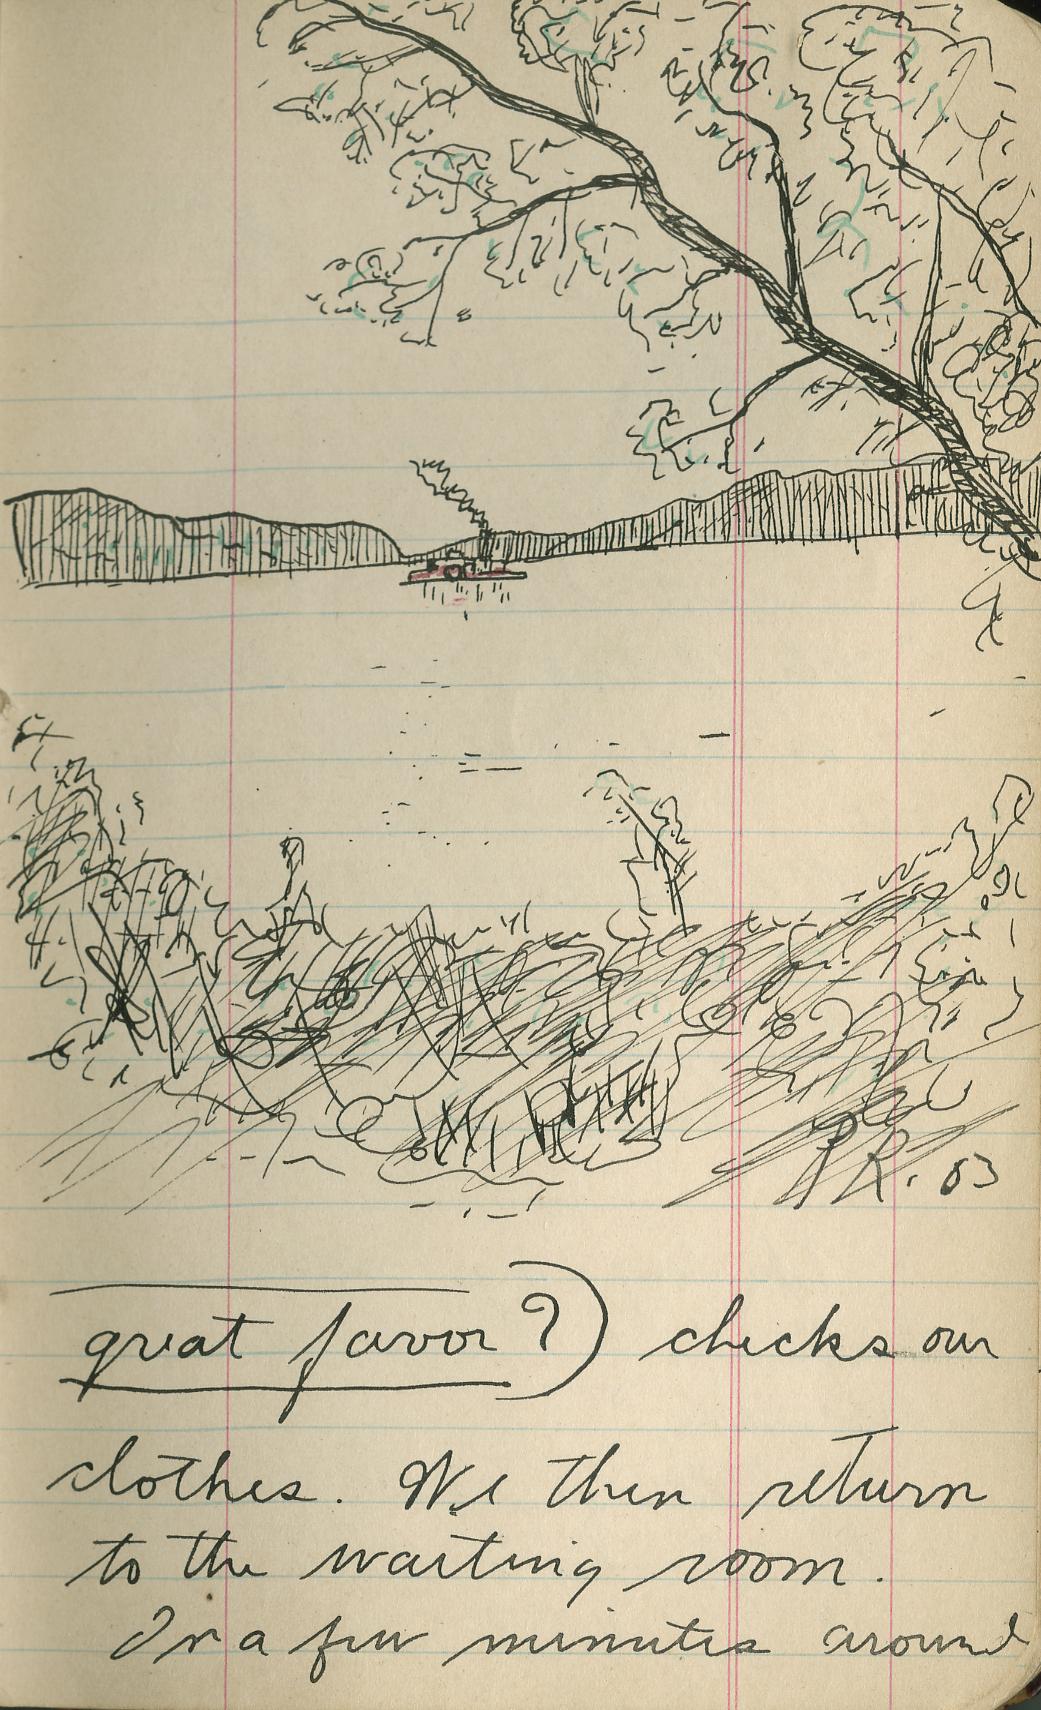 P.R. 63
great favor?) checks our
clothes. We then return
to the waiting room.
In a few minutes around